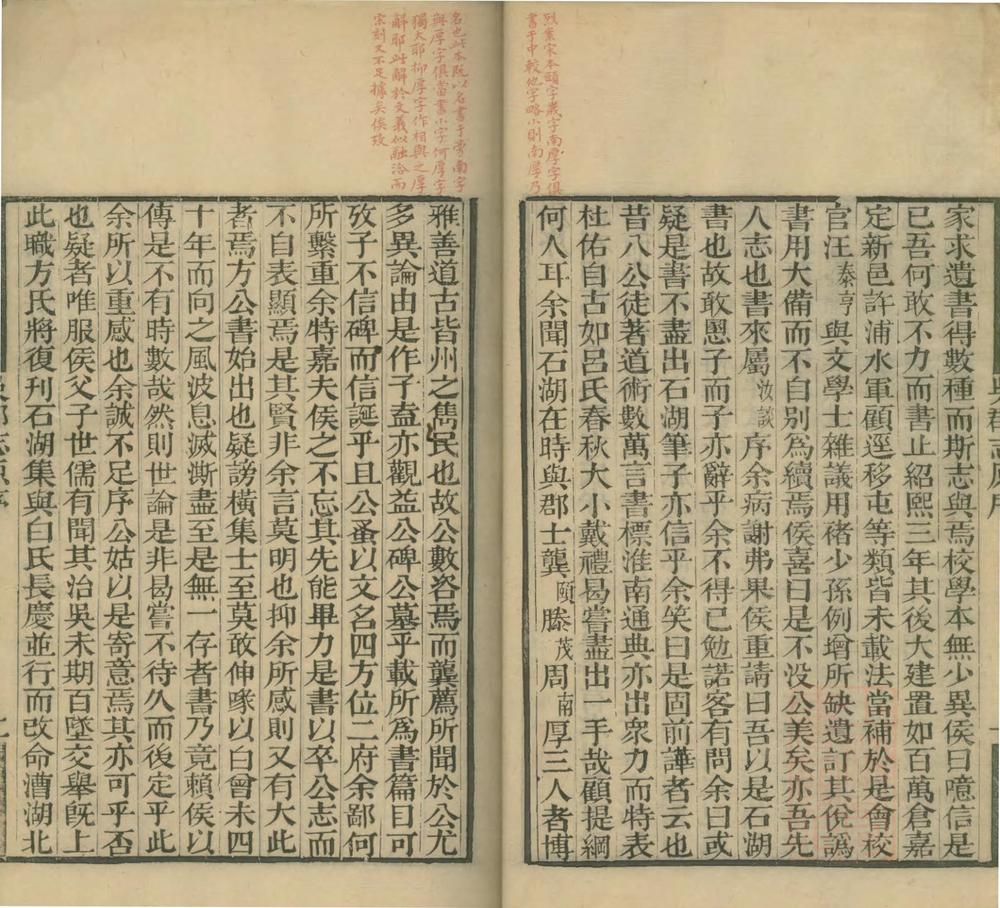 烈案宋本頤字茂字南厚字俱
書于中較他字略小則南厚乃
家求遺書得數種而斯志與焉校學本無少異侯曰噫信是
已吾何敢不力而書止紹熙三年其後大建置如百萬倉嘉
定新邑許浦水軍顧逕移屯等類皆未載法當補於是會校
官汪泰亨與文學士雜議用褚少孫例增所缺遺訂其侻譌
書用大備而不自别爲續焉侯喜曰是不没公美矣亦吾先
人志也書來屬汝談序余病謝弗果侯重請曰吾以是石湖
書也故敢慁子而子亦辭乎余不得已勉諾客有問余曰或
疑是書不盡出石湖筆子亦信乎余笑曰是固前譁者云也
昔八公徒著道術數萬言書標淮南通典亦出衆力而特表
杜佑自古如呂氏春秋大小戴禮曷嘗盡出一手哉顧提綱
何人耳余聞石湖在時與郡士龔頤滕茂周南厚三人者博
名也此本既以名書于旁南字
與厚字俱當書小字何厚字
獨大耶抑厚字作相與之厚
解耶此解於文義似融洽而
宗刻又不足據矣俟攷
雅善道古皆州之雋民也故公數咨焉而龔薦所聞於公尤
多異論由是作子盍亦觀益公碑公墓乎載所爲書篇目可
攷子不信碑而信誕乎且公蚤以文名四方位二府余鄙何
所繫重余特嘉夫侯之不忘其先能畢力是書以卒公志而
不自表顯焉是其賢非余言莫明也抑余所感則又有大此
者焉方公書始出也疑謗橫集士至莫敢伸喙以白曾未四
十年而向之風波息滅澌盡至是無一存者書乃竟賴侯以
傳是不有時數哉然則世論是非曷嘗不待久而後定乎此
余所以重感也余誠不足序公姑以是寄意焉其亦可乎否
也疑者唯服侯父子世儒有聞其治吳未期百墜交舉旣上
此職方氏將復刊石湖集與白氏長慶並行而改命漕湖北